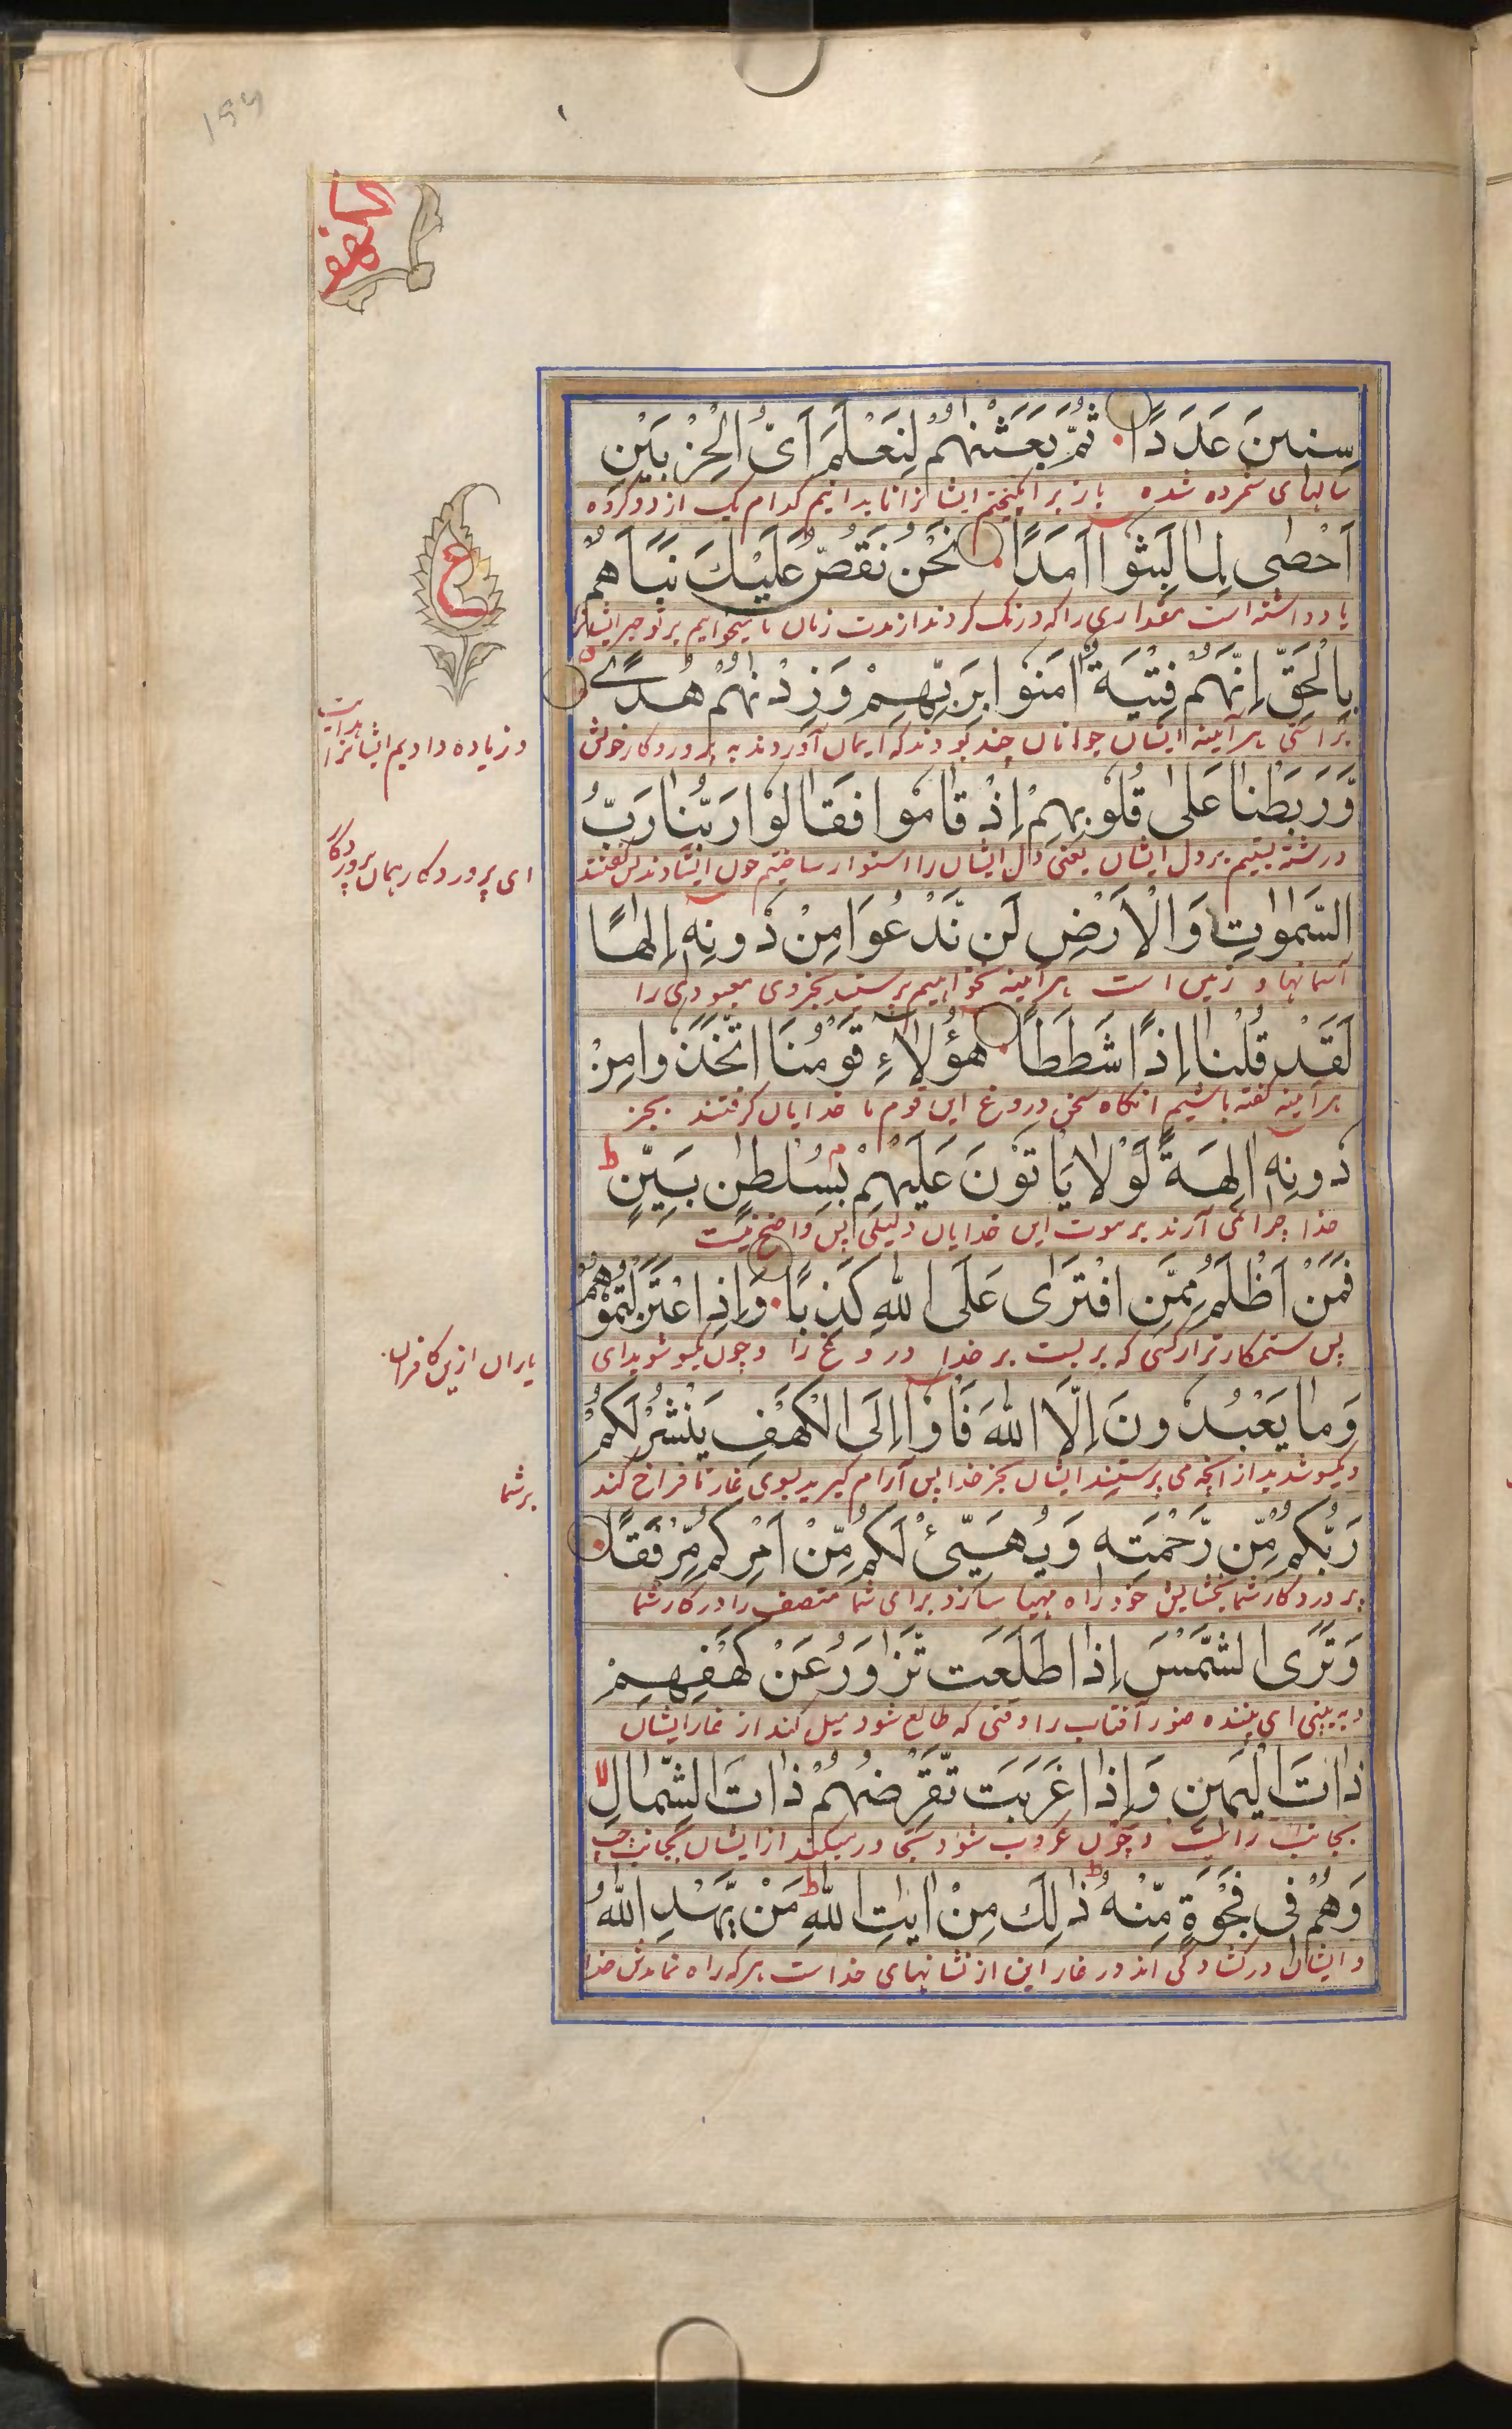 ۱۵۴
الكهف
سِنِينَ عَدَدًا ثُمَّ بَعَثْنٰهُمْ لِنَعْلَمَ اَىُّ الْحِزْبَيْنِ
سالهای شمرده شده باز برانگیختیم ایشانرا تا بدانیم کدام یک از دو گروه
اَحْصٰى لِمَا لَبِثُوٓا اَمَدًا نَحْنُ نَقُصُّ عَلَيْكَ نَبَاَهُمْ
ع
یاد داشته است مقداری را که درنگ کردند از مدت زمان ما میخوانیم بر تو خبر ایشانرا
بِالْحَقِّ اِنَّهُمْ فِتْيَةٌ اٰمَنُوا بِرَبِّهِمْ وَزِدْنٰهُمْ هُدًى
براستی هر آئینه ایشان جوانان چند بودند که ایمان آوردند به پروردگار خویش
و زیاده دادیم ایشانرا هدایت
وَّرَبَطْنَا عَلٰى قُلُوبِهِمْ اِذْ قَامُوا فَقَالُوا رَبُّنَا رَبُّ
و رشته بستیم بر دل ایشان یعنی دل ایشان را استوار ساختیم چون ایستادند پس گفتند
ای پروردگار همان پروردگار
السَّمٰوٰتِ وَالْاَرْضِ لَن نَّدْعُوَا مِنْ دُونِهٖ اِلٰهًا
آسمانها و زمین است هر آئینه نخواهیم پرستید بجز وی معبودی را
لَقَدْ قُلْنَا اِذًا شَطَطًا هٰٓؤُلَآءِ قَوْمُنَا اتَّخَذُوا مِنْ
هر آئینه گفته باشیم آنگاه سخن دروغ این قوم ما خدایان گرفتند بجز
دُونِهٖٓ اٰلِهَةً لَوْلَا يَاْتُونَ عَلَيْهِمْ بِسُلْطٰنٍ بَيِّنٍ ط
خدا چرا نمی آرند بر ثبوت این خدایان دلیلی پس واضح نیست
فَمَنْ اَظْلَمُ مِمَّنِ افْتَرٰى عَلَى اللّٰهِ كَذِبًا وَاِذِ اعْتَزَلْتُمُوْهُمْ
پس ستمکارتر از کسی که بر بست بر خدا دروغ را و چون یکسو شوید ای
یاران ازین کافران
وَمَا يَعْبُدُونَ اِلَّا اللّٰهَ فَاْوٓا اِلَى الْكَهْفِ يَنْشُرْ لَكُمْ
و یکسو شدید از آنچه می پرستند ایشان بجز خدا پس آرام گیرید بسوی غار تا فراخ کند
بر شما
رَبُّكُمْ مِّنْ رَّحْمَتِهٖ وَيُهَيِّئْ لَكُمْ مِّنْ اَمْرِكُمْ مِّرْفَقًا
پروردگار شما بخشایش خود را مهیا سازد برای شما در کار شما
وَتَرَى الشَّمْسَ اِذَا طَلَعَت تَّزٰوَرُ عَنْ كَهْفِهِمْ
و به بینی ای بیننده آفتاب را وقتی که طالع شود میل کند از غار ایشان
ذَاتَ الْيَمِينِ وَاِذَا غَرَبَت تَّقْرِضُهُمْ ذَاتَ الشِّمَالِ لا
بجانب راست و چون غروب شود تجاوز میکند از ایشان بجانب چپ
وَهُمْ فِى فَجْوَةٍ مِّنْهُ ط ذٰلِكَ مِنْ اٰيٰتِ اللّٰهِ ط مَنْ يَّهْدِ اللّٰهُ
و ایشان در کشادگی اند در غار این از نشانهای خداست هر که راه نمایدش خدا